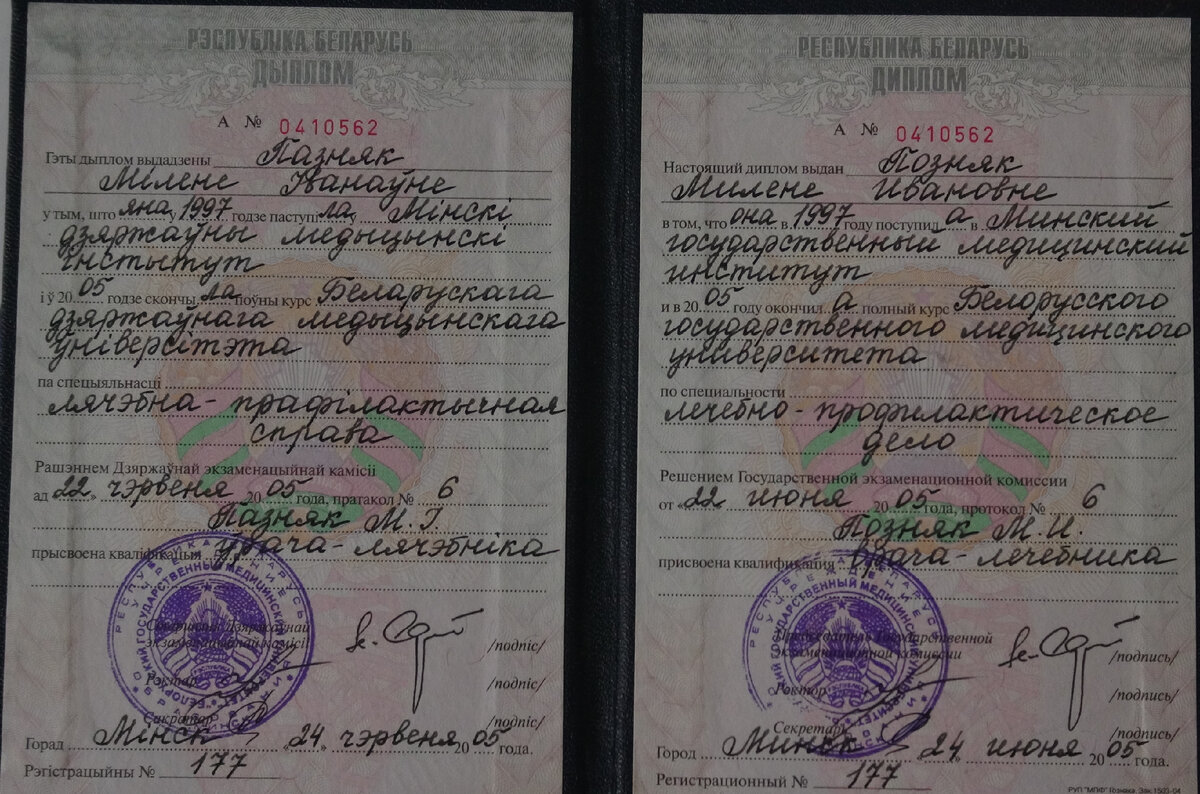 РЭСПУБЛІКА БЕЛАРУСЬ
ДЫПЛОМ
А № 0410562
Гэты дыплом выдадзены Пазняк
Мілене Іванаўне
у тым, што яна у 1997 годзе паступіла у Мінскі
дзяржаўны медыцынскі
інстытут
і ў 2005 годзе скончыла поўны курс Беларускага
дзяржаўнага медыцынскага
ўніверсітэта
па спецыяльнасці
лячэбна-прафілактычная
справа
Рашэннем Дзяржаўнай экзаменацыйнай камісіі
ад «22» чэрвеня 2005 года, пратакол № 6
Пазняк М.І.
прысвоена кваліфікацыя ўрача-лячэбніка
Дзяржаўнай
экзаменацыйнай камісіі
/подпіс/
Рэктар
/подпіс/
Сакратар
/подпіс/
Горад Мінск «24» чэрвеня 2005 года.
Рэгістрацыйны № 177
РЕСПУБЛИКА БЕЛАРУСЬ
ДИПЛОМ
А № 0410562
Настоящий диплом выдан Позняк
Милене Ивановне
в том, что она в 1997 году поступила в Минский
государственный медицинский
институт
и в 2005 году окончила полный курс Белорусского
государственного медицинского
университета
по специальности
лечебно-профилактическое
дело
Решением Государственной экзаменационной комиссии
от «22» июня 2005 года, протокол № 6
Позняк М.И.
присвоена квалификация врача-лечебника
Председатель Государственной
экзаменационной комиссии
/подпись/
Ректор
/подпись/
Секретарь
/подпись/
Город Минск «24» июня 2005 года.
Регистрационный № 177
РУП "МПФ" Гознака. Зак.1503-04